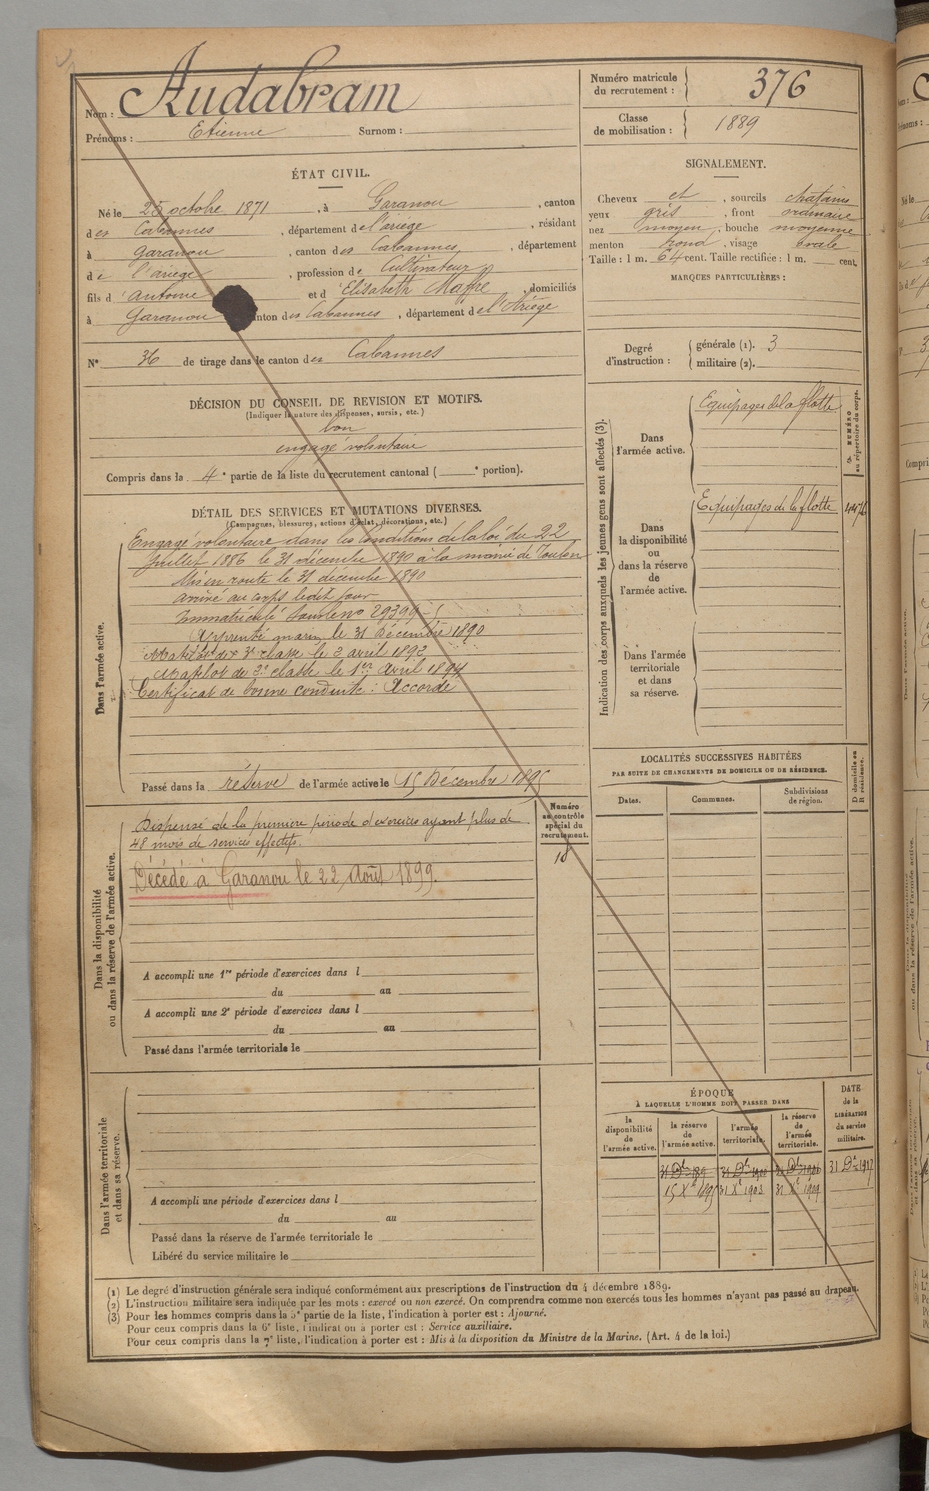 Nom : Audabram
Prénoms : Etienne Surnom :
Numéro matricule du recrutement : 376
Classe de mobilisation : 1889
ÉTAT CIVIL.
Né le 25 octobre 1871, à Garanou, canton
des Cabannes, département de l'ariège, résidant
à Garanou, canton des Cabannes, département
de l'ariège, profession de Cultivateur
fils d'antoine et d'Elisabeth Maffre, domiciliés
à Garanou canton des Cabannes, département de l'Ariège
N° 36 de tirage dans le canton des Cabannes
SIGNALEMENT.
Cheveux et, sourcils chatains
yeux gris, front ordinaire
nez moyen, bouche moyenne
menton rond, visage ovale
Taille : 1 m. 64 cent. Taille rectifiée : 1 m. cent.
MARQUES PARTICULIÈRES :
Degré d'instruction : générale (1). 3
militaire (2).
DÉCISION DU CONSEIL DE REVISION ET MOTIFS.
(Indiquer la nature des dispenses, sursis, etc.)
bon
engagé volontaire
Compris dans la 4e partie de la liste du recrutement cantonal ( e portion).
DÉTAIL DES SERVICES ET MUTATIONS DIVERSES.
(Campagnes, blessures, actions d'éclat, décorations, etc.)
Dans l'armée active.
Engagé volontaire dans les conditions de la loi du 22
Juillet 1886 le 31 décembre 1890 à la mairie de Toulon
Mis en route le 31 décembre 1890
arrivé au corps ledit jour
Immatriculé sous le no 29399-1
Apprenti marin le 31 Décembre 1890
Matelot de 3e classe le 2 avril 1892
Matelot de 2e classe le 1er Avril 1894
Certificat de bonne conduite : Accordé
Passé dans la réserve de l'armée active le 15 Décembre 1895
Indication des corps auxquels les jeunes gens sont affectés (3).
Dans l'armée active.
Equipages de la flotte
NUMÉRO au répertoire du corps.
Dans la disponibilité ou dans la réserve de l'armée active.
Equipages de la flotte
Dans l'armée territoriale et dans sa réserve.
LOCALITÉS SUCCESSIVES HABITÉES
PAR SUITE DE CHANGEMENTS DE DOMICILE OU DE RÉSIDENCE.
Dates. Communes. Subdivisions de région. D domicile ou R résidence.
Dans la disponibilité ou dans la réserve de l'armée active.
Numéro au contrôle spécial du recrutement.
Dispensé de la première période d'exercices ayant plus de
48 mois de services effectifs.
Décédé à Garanou le 22 Août 1899.
A accompli une 1re période d'exercices dans l
du au
A accompli une 2e période d'exercices dans l
du au
Passé dans l'armée territoriale le
Dans l'armée territoriale et dans sa réserve.
A accompli une période d'exercices dans l
du au
Passé dans la réserve de l'armée territoriale le
Libéré du service militaire le
ÉPOQUE
À LAQUELLE L'HOMME DOIT PASSER DANS
la disponibilité de l'armée active.
la réserve de l'armée active.
l'armée territoriale.
la réserve de l'armée territoriale.
DATE de la LIBÉRATION du service militaire.
31 Dre 1917
15 Xe 1895 31 Xe 1903 31 Xe 1909
(1) Le degré d'instruction générale sera indiqué conformément aux prescriptions de l'instruction du 4 décembre 1889.
(2) L'instruction militaire sera indiquée par les mots : exercé ou non exercé. On comprendra comme non exercés tous les hommes n'ayant pas passé au drapeau.
(3) Pour les hommes compris dans la 5e partie de la liste, l'indication à porter est : Ajourné.
Pour ceux compris dans la 6e liste, l'indication à porter est : Service auxiliaire.
Pour ceux compris dans la 7e liste, l'indication à porter est : Mis à la disposition du Ministre de la Marine. (Art. 4 de la loi.)